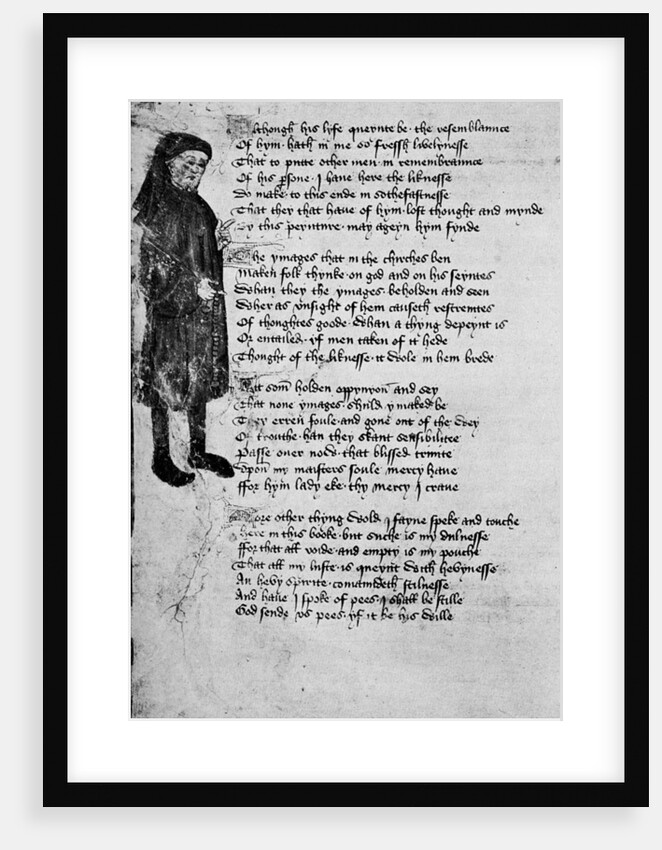 Although his lyfe queynte be the resemblaunce
Of hym hath in me so fressh lyflynesse
That to putte other men in remembraunce
Of his psone I haue here the liknesse
Do make to this ende in sothfastnesse
That they that haue of hym lost thought and mynde
By this peynture may ageyn hym fynde
The ymages that in the chirches ben
Maken folk thynke on god and on his seyntes
Whan they the ymages beholden and seen
Wher as vnsight of hem causeth restreyntes
Of thoughtes goode whan a thyng depeynt is
Or entailed yf men taken of it hede
Thought of the liknesse it wole in hem brede
Yit som holden oppynyon and sey
That none ymages shuld ymaked be
They erren foule and gone out of the wey
Of trouthe han they skant sensibilitee
Passe ouer now that blissed trinite
Vpon my maisters soule mercy haue
ffor hym lady eke thy mercy I craue
More other thyng wold I fayne speke and touche
Here in this booke but suche is my dulnesse
ffor that all voide and empty is my pouche
That all my luste is queynt with hevynesse
An hevy spirite comaundeth stilnesse
And haue I spoke of pees I shall be stille
God sende vs pees yf it be his wille